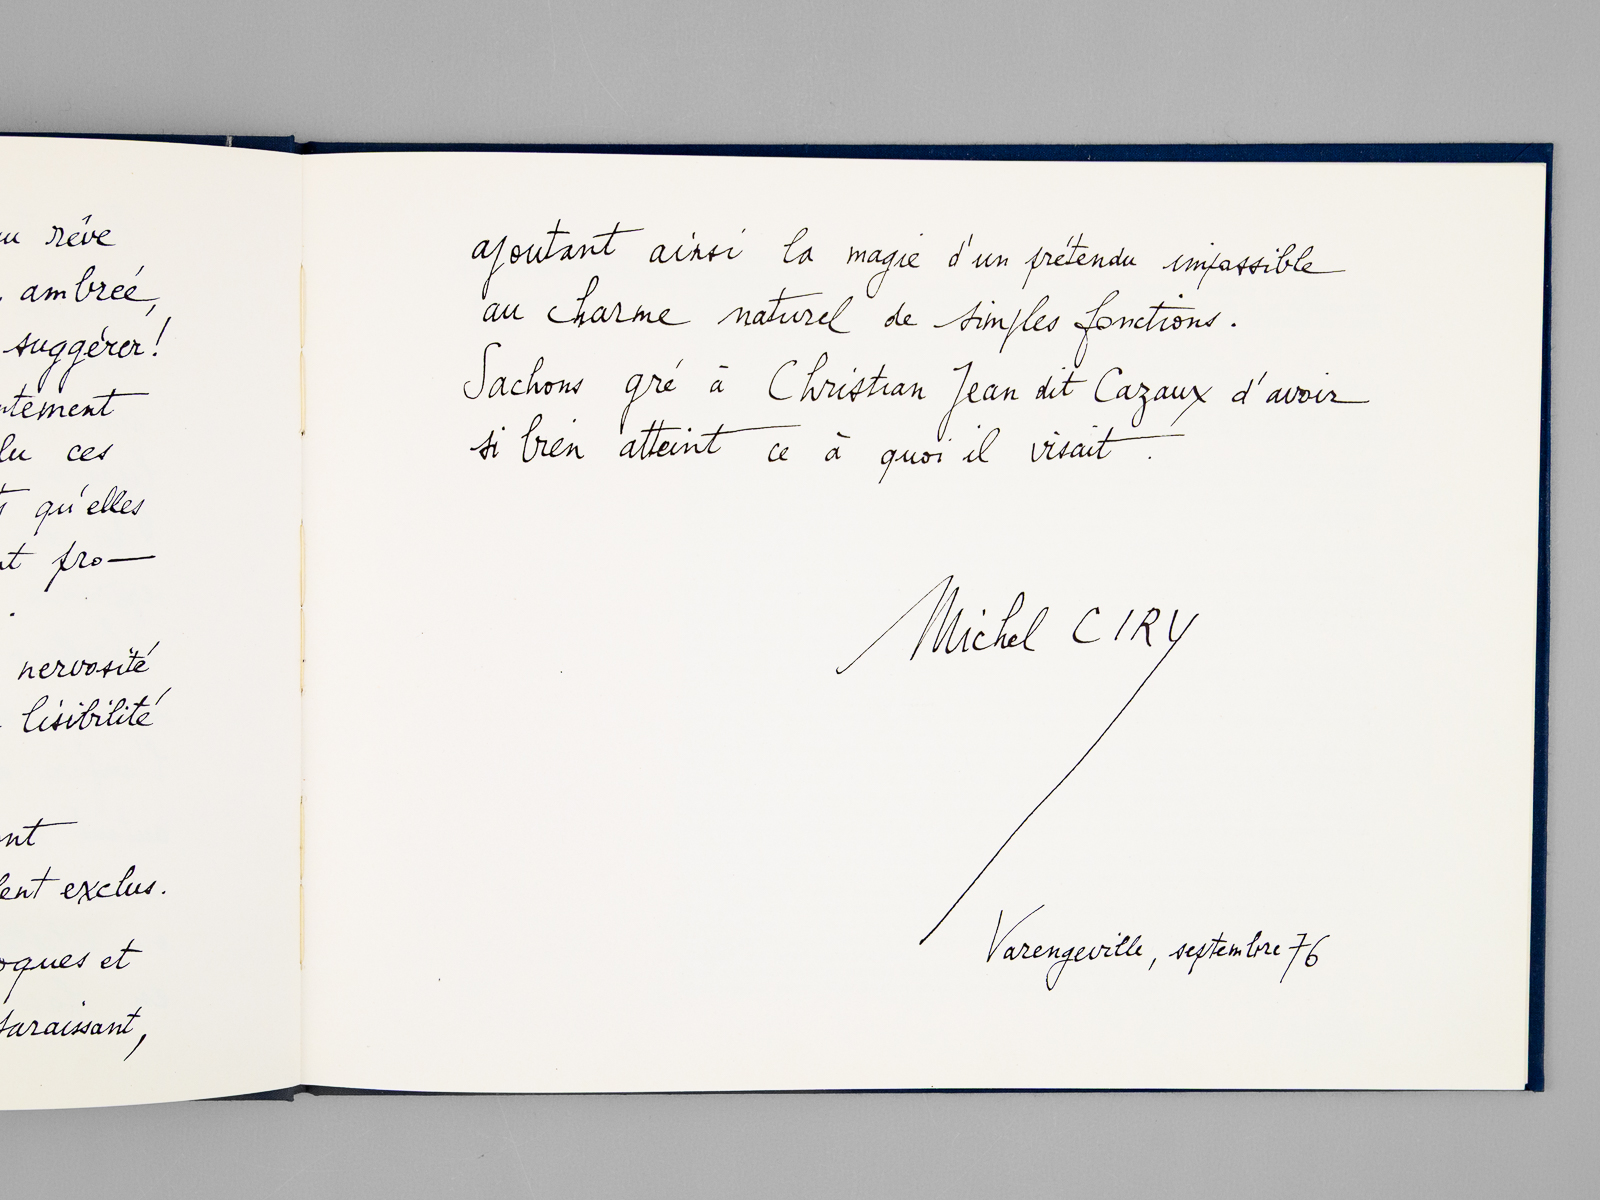 rêve
ambréé,
suggérer!
lu ces
qu'elles
fro—
nervosité
lisibilité
exclus.
et
ajoutant ainsi la magie d'un prétendu impassible
au charme naturel de simples fonctions.
Sachons gré à Christian Jean dit Cazaux d'avoir
si bien atteint ce à quoi il visait.
Michel CIRY
Varengeville, septembre 76